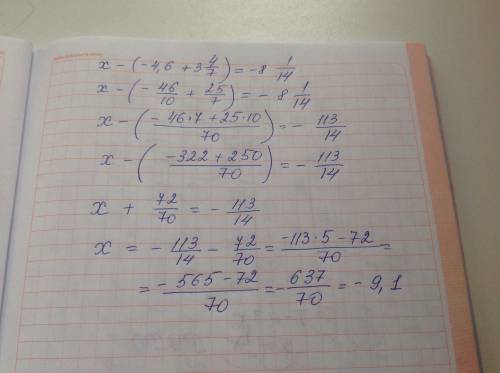 x - (-4,6 + 3 4/7) = -8 1/14
x - (- 46/10 + 25/7) = - 8 1/14
x - ((- 46·7 + 25·10)/70) = - 113/14
x - ((-322 + 250)/70) = - 113/14
x + 72/70 = - 113/14
x = - 113/14 - 72/70 = (-113·5 - 72)/70 =
= (- 565 - 72)/70 = - 637/70 = - 9,1